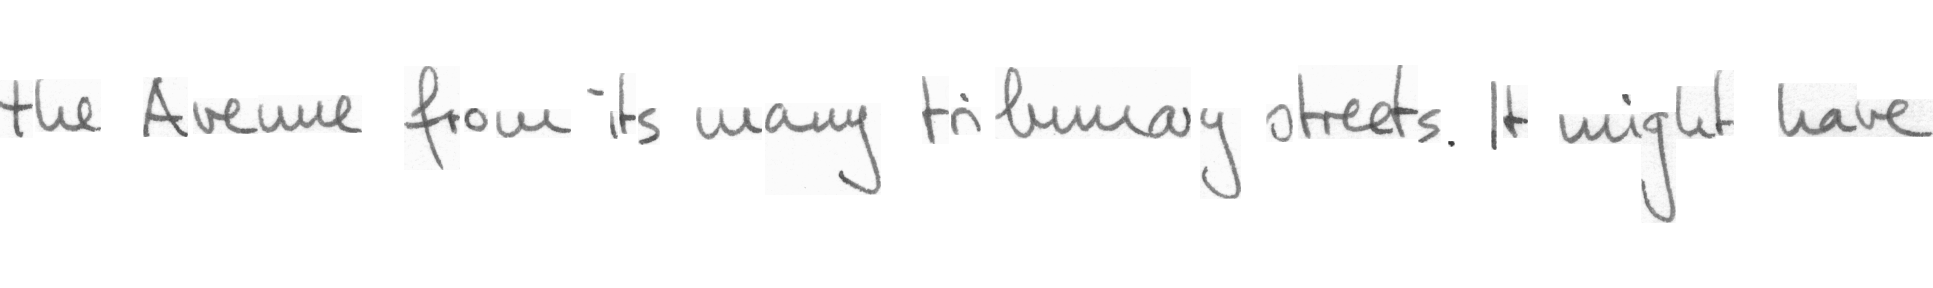 the Avenue from its many tribunary streets. It might have